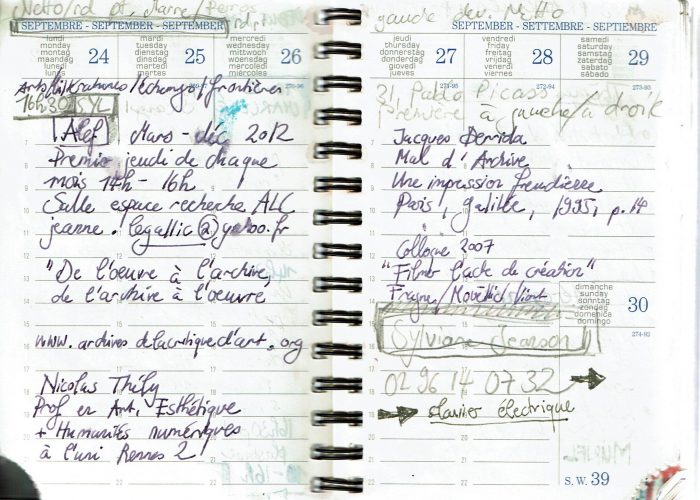 SEPTEMBRE - SEPTEMBER - SEPTEMBER
lundi mardi mercredi
monday tuesday wednesday
montag dienstag mittwoch
maandag dinsdag woensdag
lunedi martedi mercoledi
lunes martes miercoles
24 25 26
16h30 SYL
Alef Mars - déc 2012
Premier jeudi de chaque
mois 14h - 16h
Salle espace recherche ALC
"De l'oeuvre à l'archive,
de l'archive à l'oeuvre
www.archivesdelacritiqued'art.org
Nicolas Thély
Prof en Art, Esthétique
+ Humanités numériques
à l'uni Rennes 2
SEPTEMBER - SETTEMBRE - SEPTIEMBRE
jeudi vendredi samedi
thursday friday saturday
donnerstag freitag samstag
donderdag vrijdag zaterdag
giovedi venerdi sabato
jueves viernes sábado
27 28 29
21, Pablo Picasso
première à gauche/à droite
Jacques Derrida
Mal d'Archive
Une impression freudienne
Paris, galilée, 1995, p.14
Colloque 2007
"Filmer l'acte de création"
dimanche
sunday
sonntag
zondag
domenica
domingo
30
274-92
Sylviane
02 96 14 07 32
clavier électrique
S.W. 39